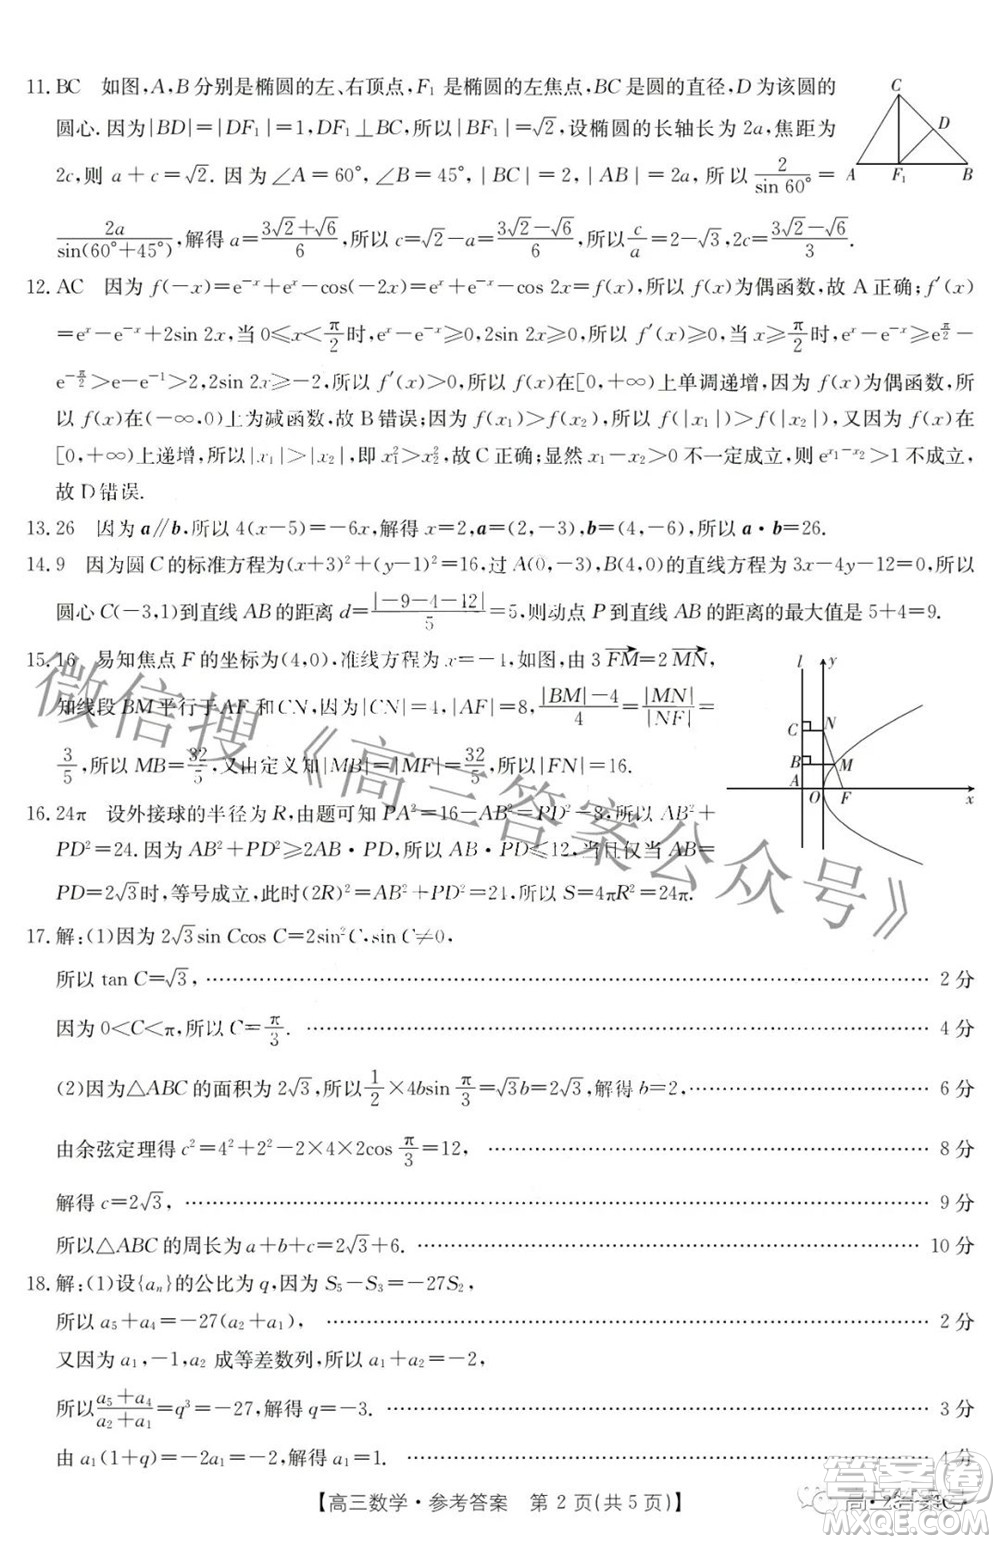 11. BC 如图,A,B分别是椭圆的左、右顶点,F₁是椭圆的左焦点,BC是圆的直径,D为该圆的
圆心.因为|BD|=|DF₁|=1,DF₁⊥BC,所以|BF₁|=√2,设椭圆的长轴长为2a,焦距为
2c,则a+c=√2.因为∠A=60°,∠B=45°,|BC|=2,|AB|=2a,所以2/sin 60°=
2a/sin(60°+45°),解得a=(3√2+√6)/6,所以c=√2-a=(3√2-√6)/6,所以c/a=2-√3,2c=(3√2-√6)/3.
C
D
A F₁ B
12. AC 因为f(-x)=e⁻ˣ+eˣ-cos(-2x)=eˣ+e⁻ˣ-cos 2x=f(x),所以f(x)为偶函数,故A正确;f′(x)
=eˣ-e⁻ˣ+2sin 2x,当0≤x<π/2时,eˣ-e⁻ˣ≥0,2sin 2x≥0,所以f′(x)≥0,当x≥π/2时,eˣ-e⁻ˣ≥e^(π/2)-
e^(-π/2)>e-e⁻¹>2,2sin 2x≥-2,所以f′(x)>0,所以f(x)在[0,+∞)上单调递增,因为f(x)为偶函数,所
以f(x)在(-∞,0)上为减函数,故B错误;因为f(x₁)>f(x₂),所以f(|x₁|)>f(|x₂|),又因为f(x)在
[0,+∞)上递增,所以|x₁|>|x₂|,即x₁²>x₂²,故C正确;显然x₁-x₂>0不一定成立,则e^(x₁-x₂)>1不成立,
故D错误.
13. 26 因为a∥b,所以4(x-5)=-6x,解得x=2,a=(2,-3),b=(4,-6),所以a·b=26.
14. 9 因为圆C的标准方程为(x+3)²+(y-1)²=16,过A(0,-3),B(4,0)的直线方程为3x-4y-12=0,所以
圆心C(-3,1)到直线AB的距离d=|-9-4-12|/5=5,则动点P到直线AB的距离的最大值是5+4=9.
15. 16 易知焦点F的坐标为(4,0),准线方程为x=-4,如图,由3FM=2MN,
知线段BM平行于AF和CN,因为|CN|=4,|AF|=8,(|BM|-4)/4=|MN|/|NF|=
3/5,所以MB=32/5,又由定义知|MB|=|MF|=32/5,所以|FN|=16.
l y
C N
B M
A O F x
16. 24π 设外接球的半径为R,由题可知PA²=16-AB²=PD²-8,所以AB²+
PD²=24.因为AB²+PD²≥2AB·PD,所以AB·PD≤12,当且仅当AB=
PD=2√3时,等号成立,此时(2R)²=AB²+PD²=24,所以S=4πR²=24π.
17. 解:(1)因为2√3sin Ccos C=2sin²C,sin C≠0,
所以tan C=√3, …… 2分
因为0<C<π,所以C=π/3. …… 4分
(2)因为△ABC的面积为2√3,所以1/2×4bsin π/3=√3b=2√3,解得b=2, …… 6分
由余弦定理得c²=4²+2²-2×4×2cos π/3=12, …… 8分
解得c=2√3, …… 9分
所以△ABC的周长为a+b+c=2√3+6. …… 10分
18. 解:(1)设{aₙ}的公比为q,因为S₅-S₃=-27S₂,
所以a₅+a₄=-27(a₂+a₁), …… 2分
又因为a₁,-1,a₂成等差数列,所以a₁+a₂=-2,
所以(a₅+a₄)/(a₂+a₁)=q³=-27,解得q=-3. …… 3分
由a₁(1+q)=-2a₁=-2,解得a₁=1. …… 4分
【高三数学·参考答案 第2页(共5页)】
微信搜《高三答案公众号》
答案圈
MXQE.COM